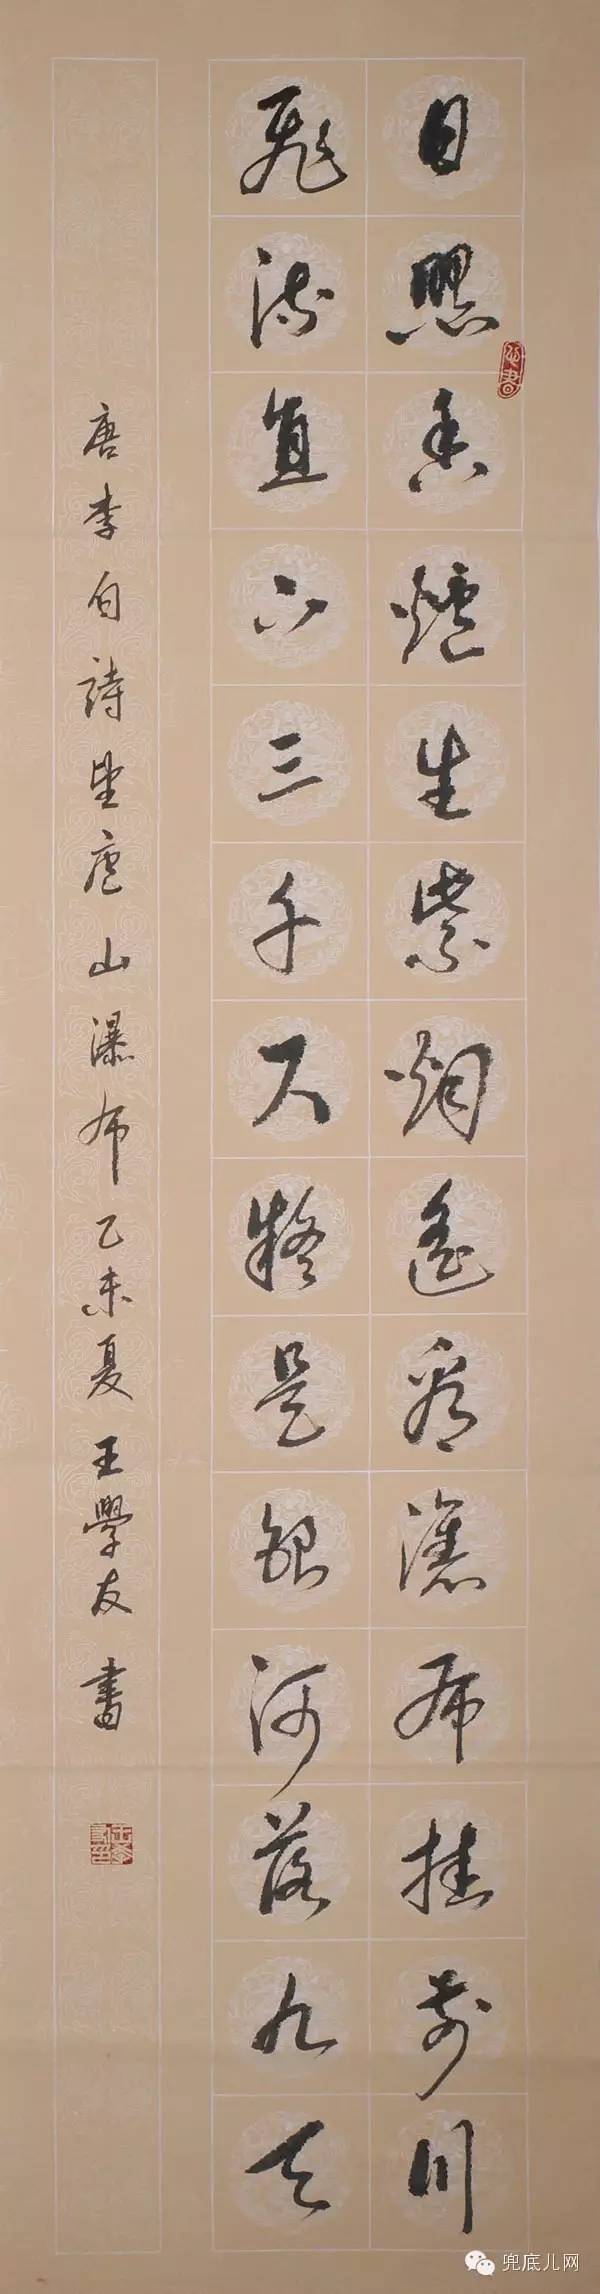 日照香爐生紫烟遙看瀑布挂前川
飛流直下三千尺疑是銀河落九天
唐李白詩望廬山瀑布乙未夏王學友書
兜底儿网